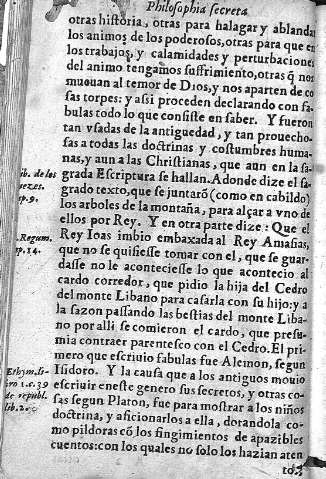 Philosophia secreta
otras historia, otras para halagar y ablandar
los animos de los poderosos, otras para que en
los trabajos, y calamidades y perturbaciones
del animo tengamos suffrimiento, otras q̃ nos
mueuan al temor de Dios, y nos aparten de co
sas torpes: y assi proceden declarando con fa-
bulas todo lo que consiste en saber. Y fueron
tan vsadas de la antiguedad, y tan prouecho-
sas a todas las doctrinas y costumbres huma-
nas, y aun a las Christianas, que aun en la sa-
lib. de los
grada Escriptura se hallan. Adonde dize el sa-
uezes.
grado texto, que se juntarõ (como en cabildo)
ap. 9.
los arboles de la montaña, para alçar a vno de
ellos por Rey. Y en otra parte dize: Que el
.Regum.
Rey Ioas imbio embaxada al Rey Amasias,
ap. 14.
que no se quisiesse tomar con el, que se guar-
dasse no le aconteciesse lo que acontecio al
cardo corredor, que pidio la hija del Cedro
del monte Libano para casarla con su hijo: y a
la sazon passando las bestias del monte Liba-
no por alli se comieron el cardo, que presu-
mia contraer parentesco con el Cedro. El pri-
mero que escriuio fabulas fue Alcmon, segun
Ethym. li-
Isidoro. Y la causa que a los antiguos mouio
ro 1. c. 39
escriuir en este genero sus secretos, y otras co-
de republ.
sas segun Platon, fue para mostrar a los niños
lib. 2.
doctrina, y aficionarlos a ella, dorandola co-
mo pildoras cõ los fingimientos de apazibles
cuentos: con los quales no solo los hazian aten
tos